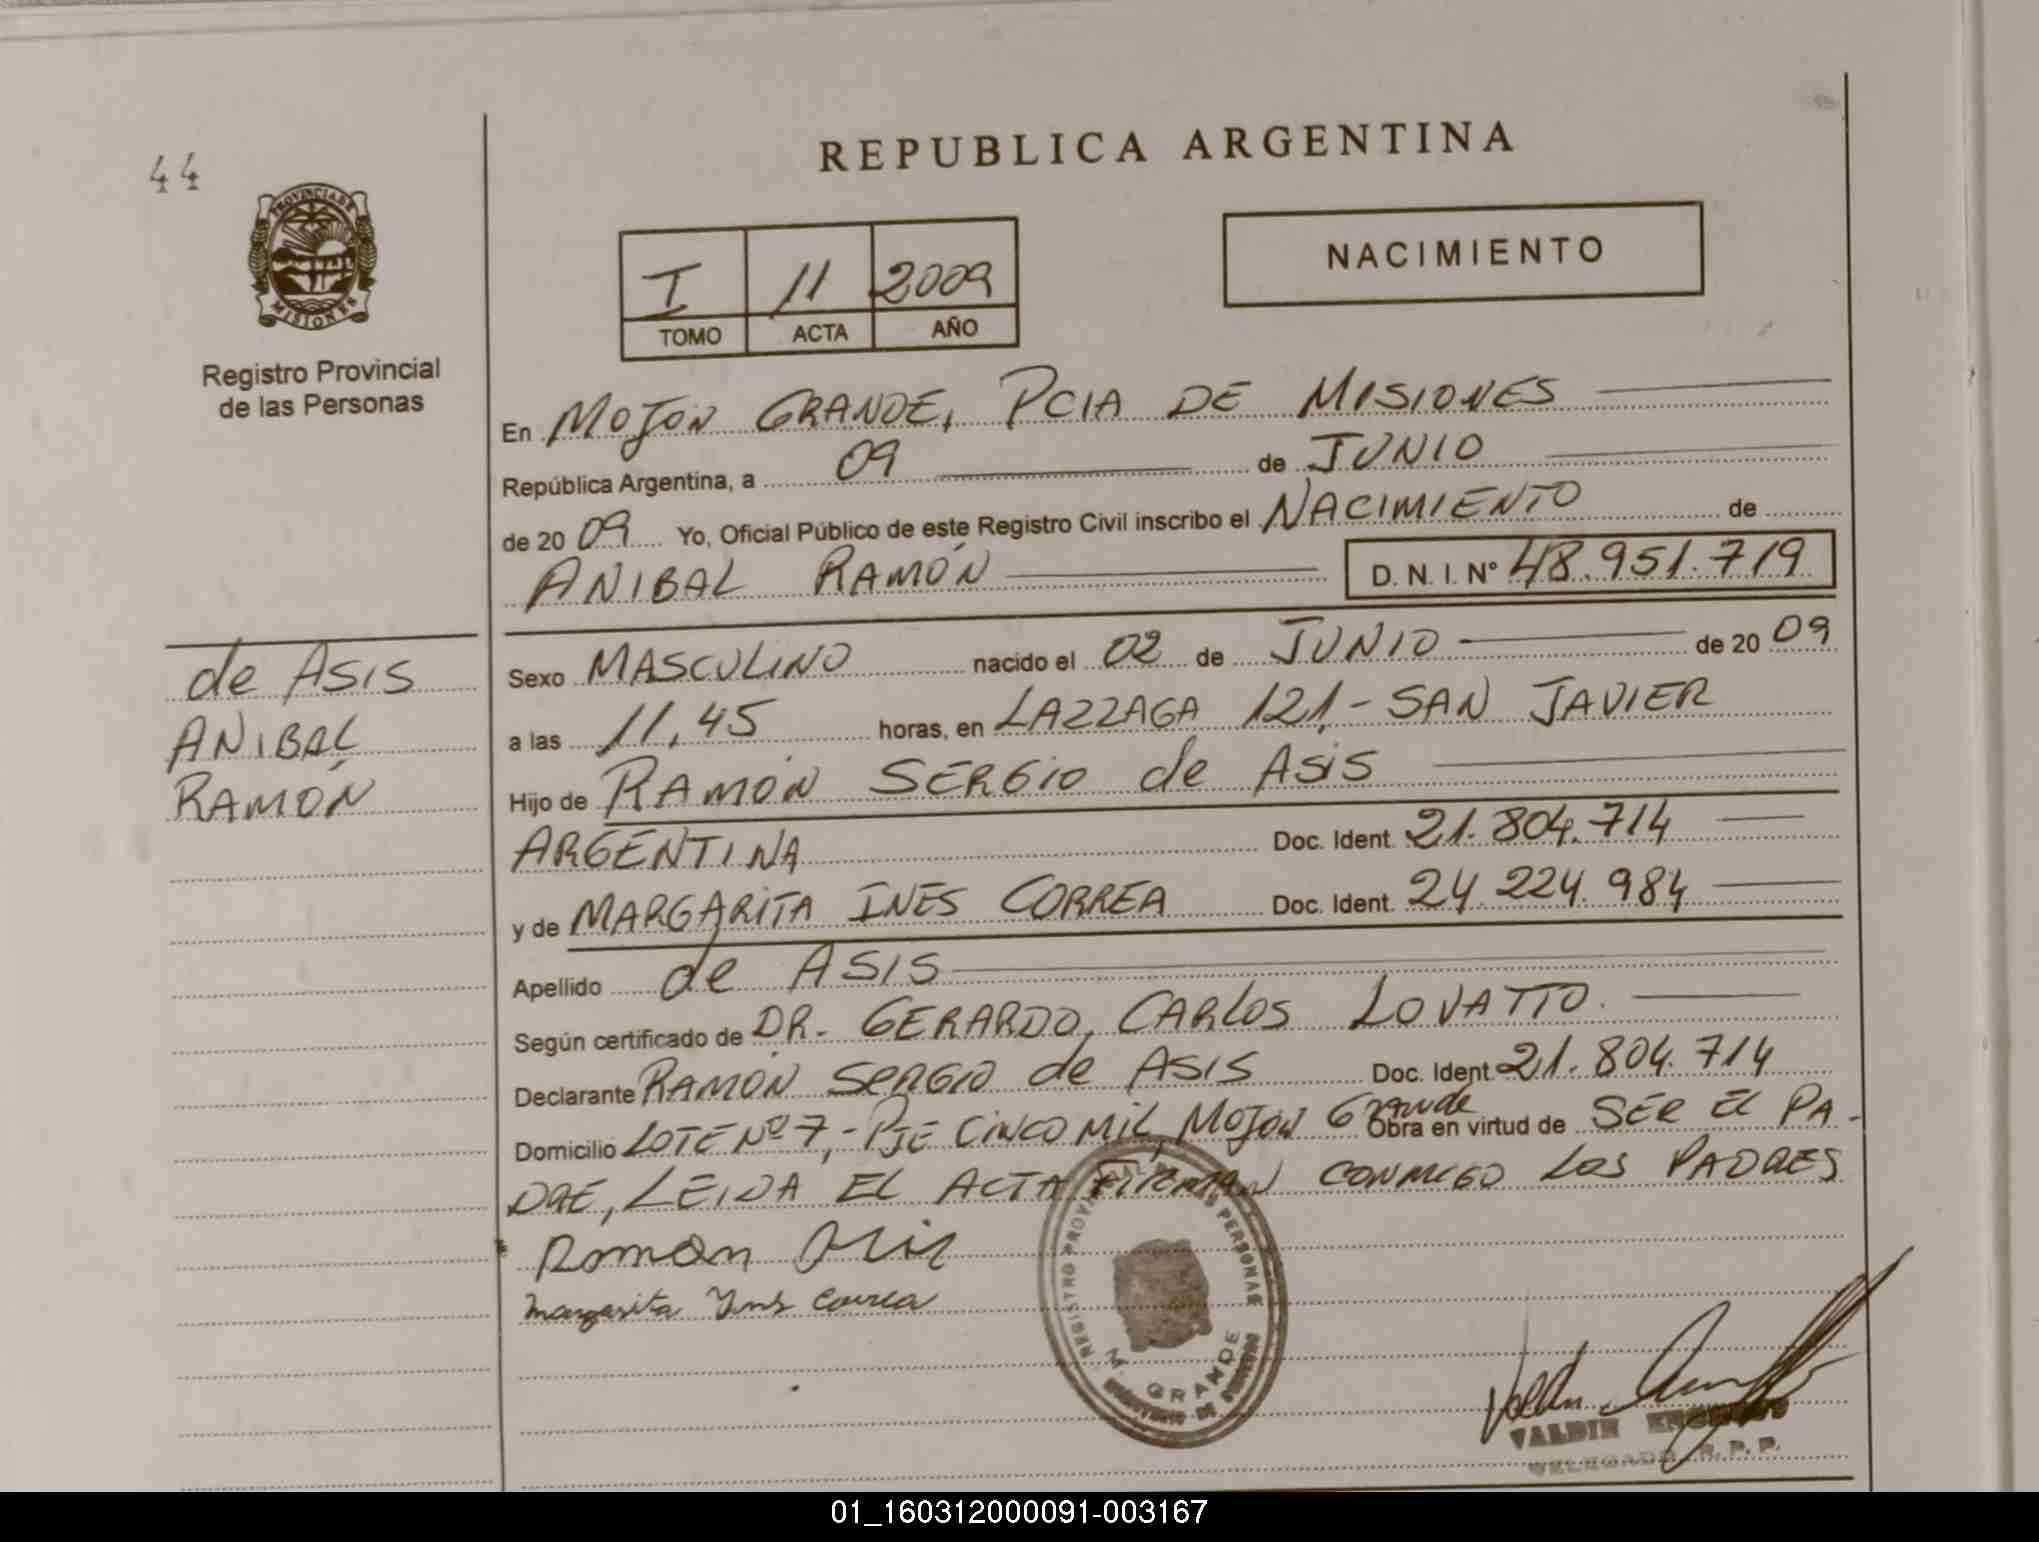 44
REPUBLICA ARGENTINA
PROVINCIA DE
MISIONES
Registro Provincial
de las Personas
I 11 2009
TOMO ACTA AÑO
NACIMIENTO
En MOJON GRANDE, PCIA DE MISIONES
República Argentina, a 09 de JUNIO
de 20 09 Yo, Oficial Público de este Registro Civil inscribo el NACIMIENTO de
ANIBAL RAMÓN D. N. I. Nº 48.951.719
de ASIS
ANIBAL
RAMÓN
Sexo MASCULINO nacido el 02 de JUNIO de 20 09
a las 11,45 horas, en LAZZAGA 121,- SAN JAVIER
Hijo de RAMÓN SERGIO de ASIS
ARGENTINA Doc. Ident. 21.804.714
y de MARGARITA INES CORREA Doc. Ident. 24.224.984
Apellido de ASIS
Según certificado de DR. GERARDO, CARLOS LOVATTO.
Declarante RAMÓN SERGIO de ASIS Doc. Ident. 21.804.714
Domicilio LOTE Nº 7,- PJE CINCO MIL, MOJON Grande Obra en virtud de SER EL PA-
DRE, LEIDA EL ACTA FIRMAN CONMIGO LOS PADRES
Ramon Asis
Margarita Ines Correa
REGISTRO PROVINCIAL DE LAS PERSONAS
M. GRANDE
VALDIR
DELEGADO R.P.P.
01_160312000091-003167